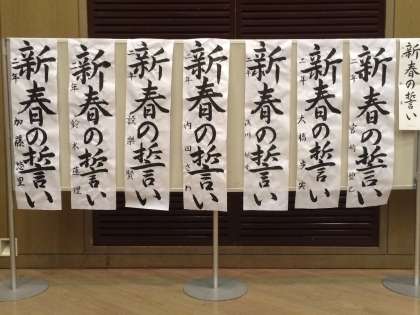 新春の誓い
新春の誓い
二年 宮崎
新春の誓い
二年 大橋
新春の誓い
二年
新春の誓い
二年 内田
新春の誓い
二年 設楽 賢
新春の誓い
二年 鈴木
新春の誓い
二年 加藤